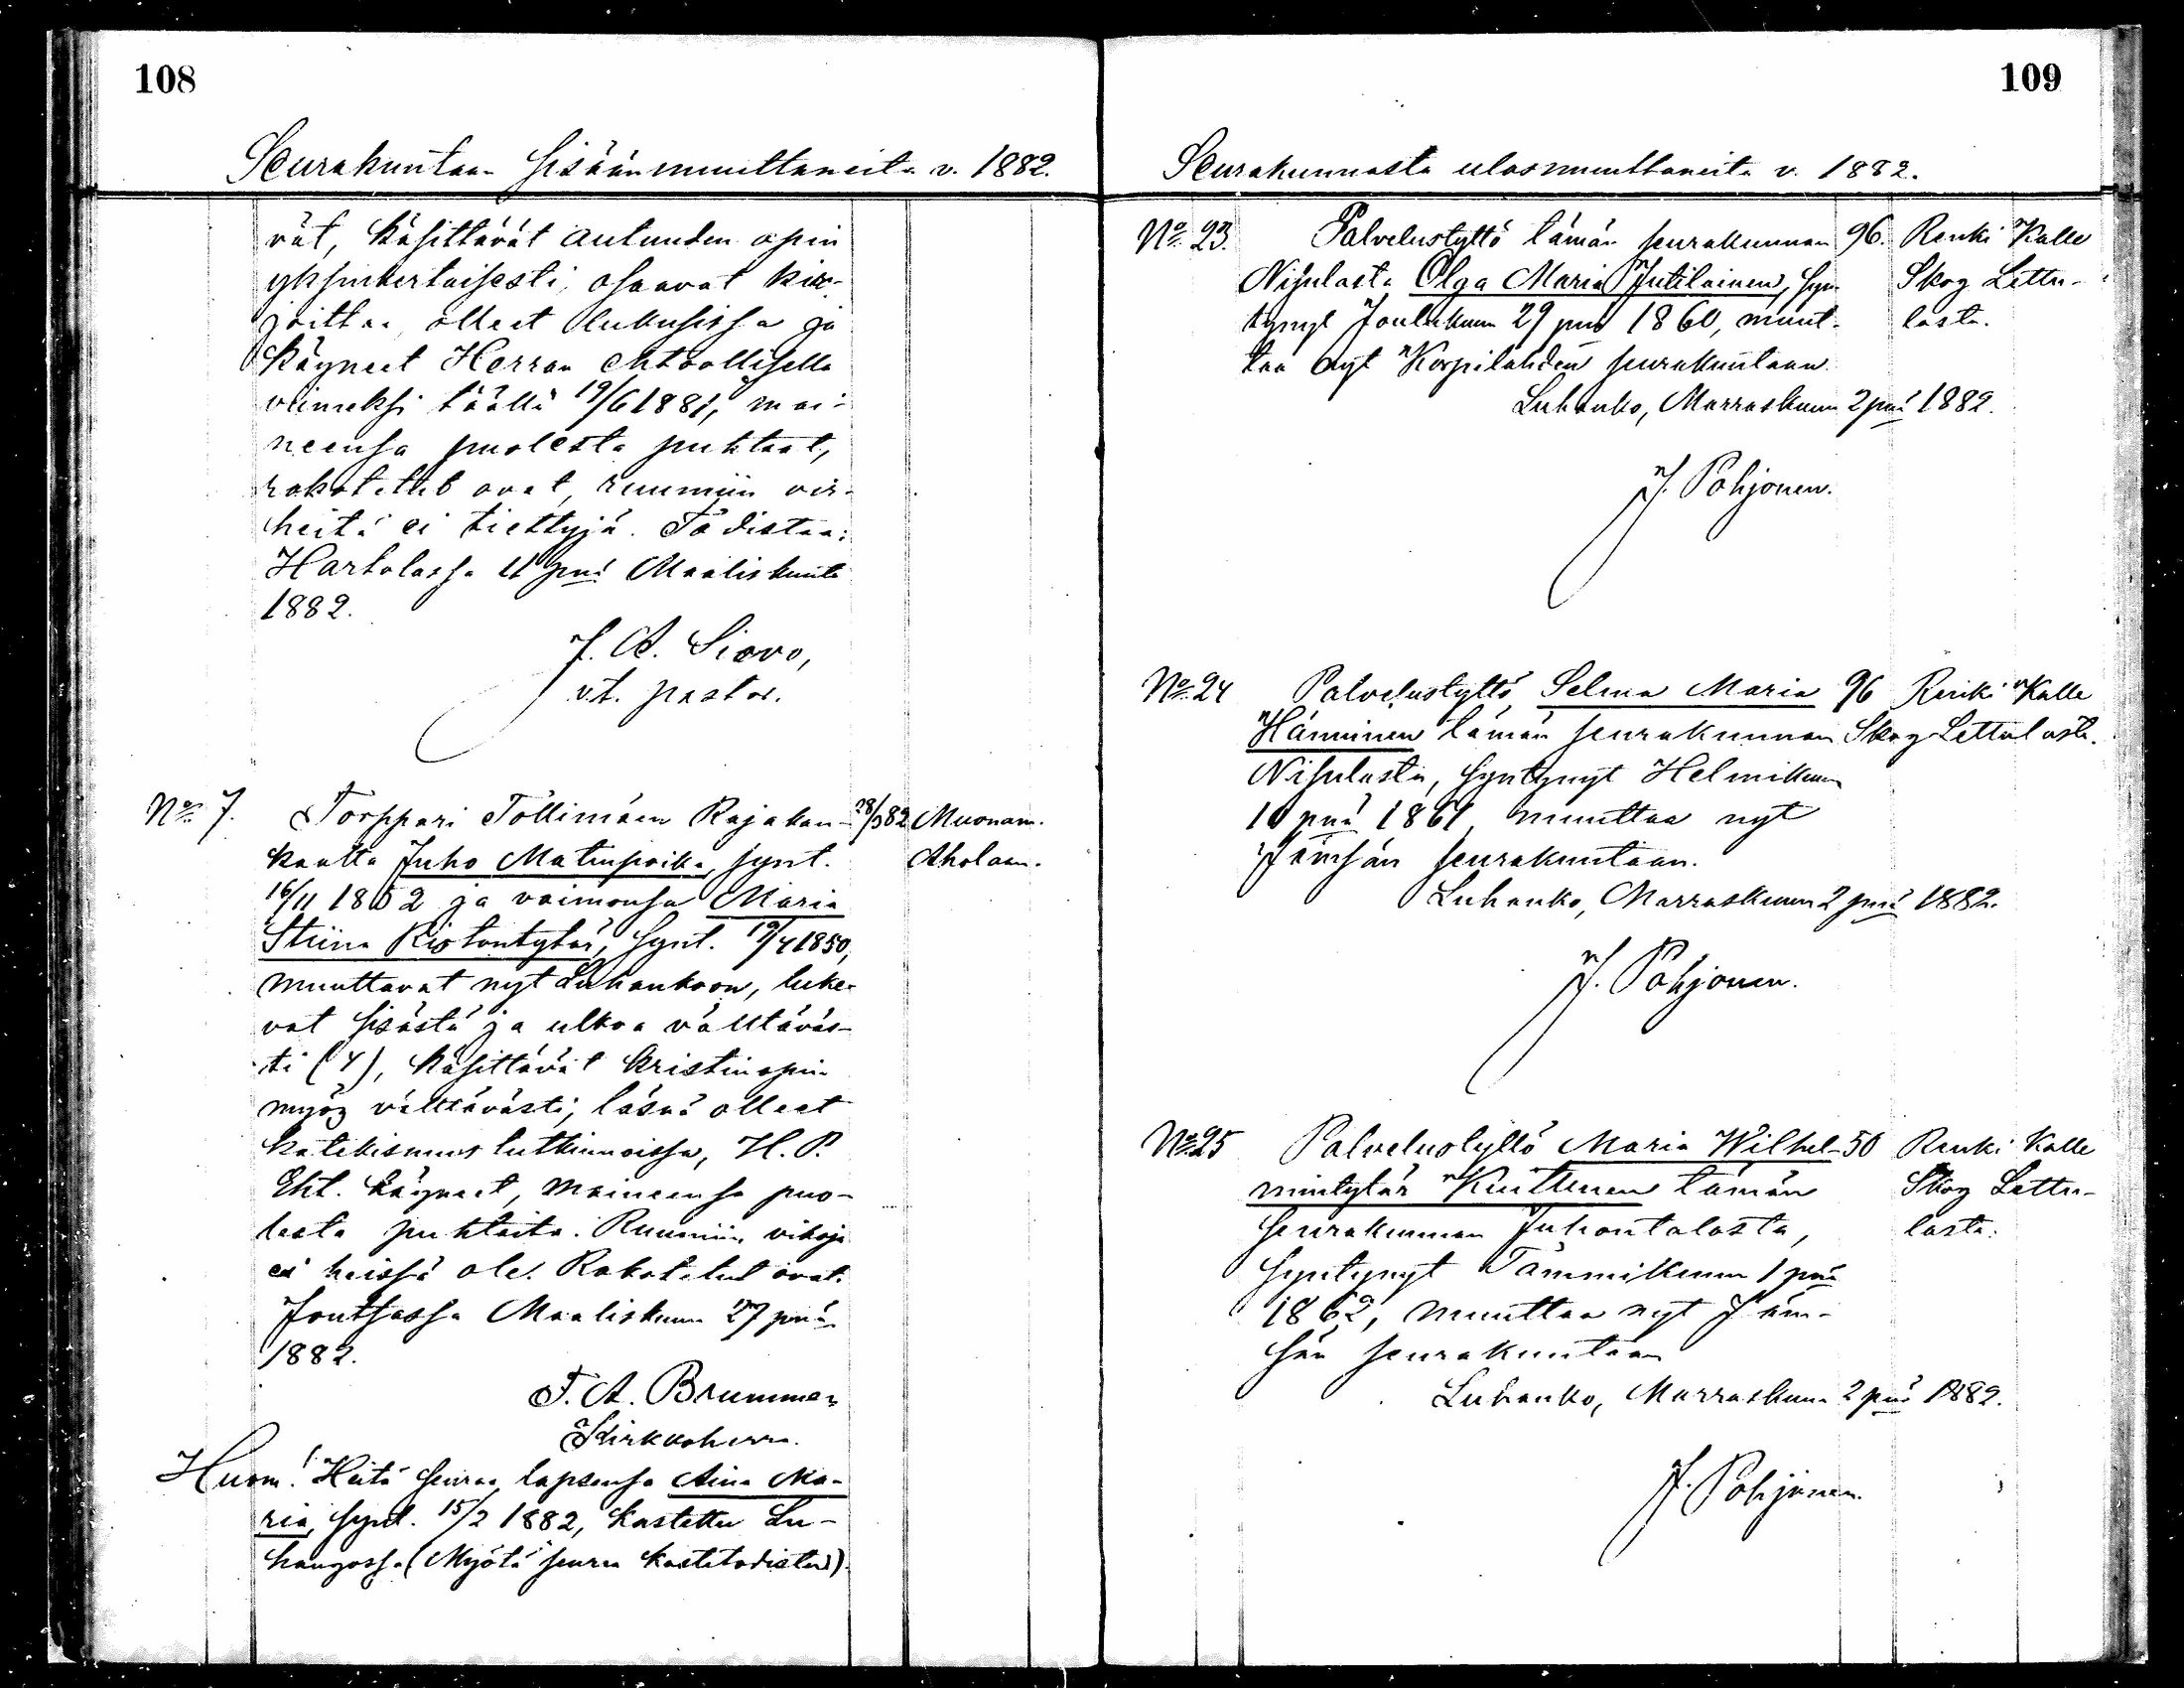 108
Seurakuntaan sisäänmuuttaneita v. 1882.
vät, käsittävät autuuden opin
yksinkertaisesti, osaavat kir-
joittaa, olleet lukusissa ja
käyneet Herran ehtoollisella
viimeksi täällä 19/6 1881, mai-
neensa puolesta puhtaat,
rokotetut ovat, ruumiin vir-
heitä ei tiettyjä. Todistaa:
Hartolassa 11 pnä Maaliskuuta
1882.
J. A. Siovo,
v.t. pastor.
No 7. Torppari Töllimäen Rajakan- 28/3 82 Muonam.
kaalta Juho Matinpoika, synt. Aholaan.
16/11 1852 ja vaimonsa Maria
Stiina Ristontytär, synt. 19/4 1850,
muuttavat nyt Luhankoon, luke-
vat sisästä ja ulkoa välttäväs-
ti (4), käsittävät kristinopin
myös välttävästi, läsnä olleet
katekismus tutkinnoissa, H. P.
Eht. käyneet, maineensa puo-
lesta puhtaita. Ruumiin vikoja
ei heissä ole. Rokotetut ovat.
Joutsassa Maaliskuun 27 pnä
1882.
F. A. Brummer
Kirkkoherra.
Huom! Heitä seuraa lapsensa Aina Ma-
ria, synt. 15/2 1882, kastettu Lu-
hangossa (Myötä seuraa kastetodistus).
109
Seurakunnasta ulosmuuttaneita v. 1882.
No 23. Palvelustyttö tämän seurakunnan 96. Renki Kalle
Nisulasta Olga Maria Jutilainen, syn- Skog Lettu-
tynyt Joulukuun 29 pnä 1860, muut- lasta.
taa nyt Korpilahden seurakuntaan.
Luhanko, Marraskuun 2 pnä 1882.
J. Pohjonen.
No 24 Palvelustyttö Selma Maria 96 Renki Kalle
Hänninen tämän seurakunnan Skog Lettulasta.
Nisulasta, syntynyt Helmikuun
10 pnä 1861, muuttaa nyt
Jämsän seurakuntaan.
Luhanko, Marraskuun 2 pnä 1882.
J. Pohjonen.
No 25 Palvelustyttö Maria Wilhel- 50 Renki Kalle
mintytär Kuittinen tämän Skog Lettu-
seurakunnan Juhontalosta, lasta.
syntynyt Tammikuun 1 pnä
1862, muuttaa nyt Jäm-
sän seurakuntaan
Luhanko, Marraskuun 2 pnä 1882.
J. Pohjonen.